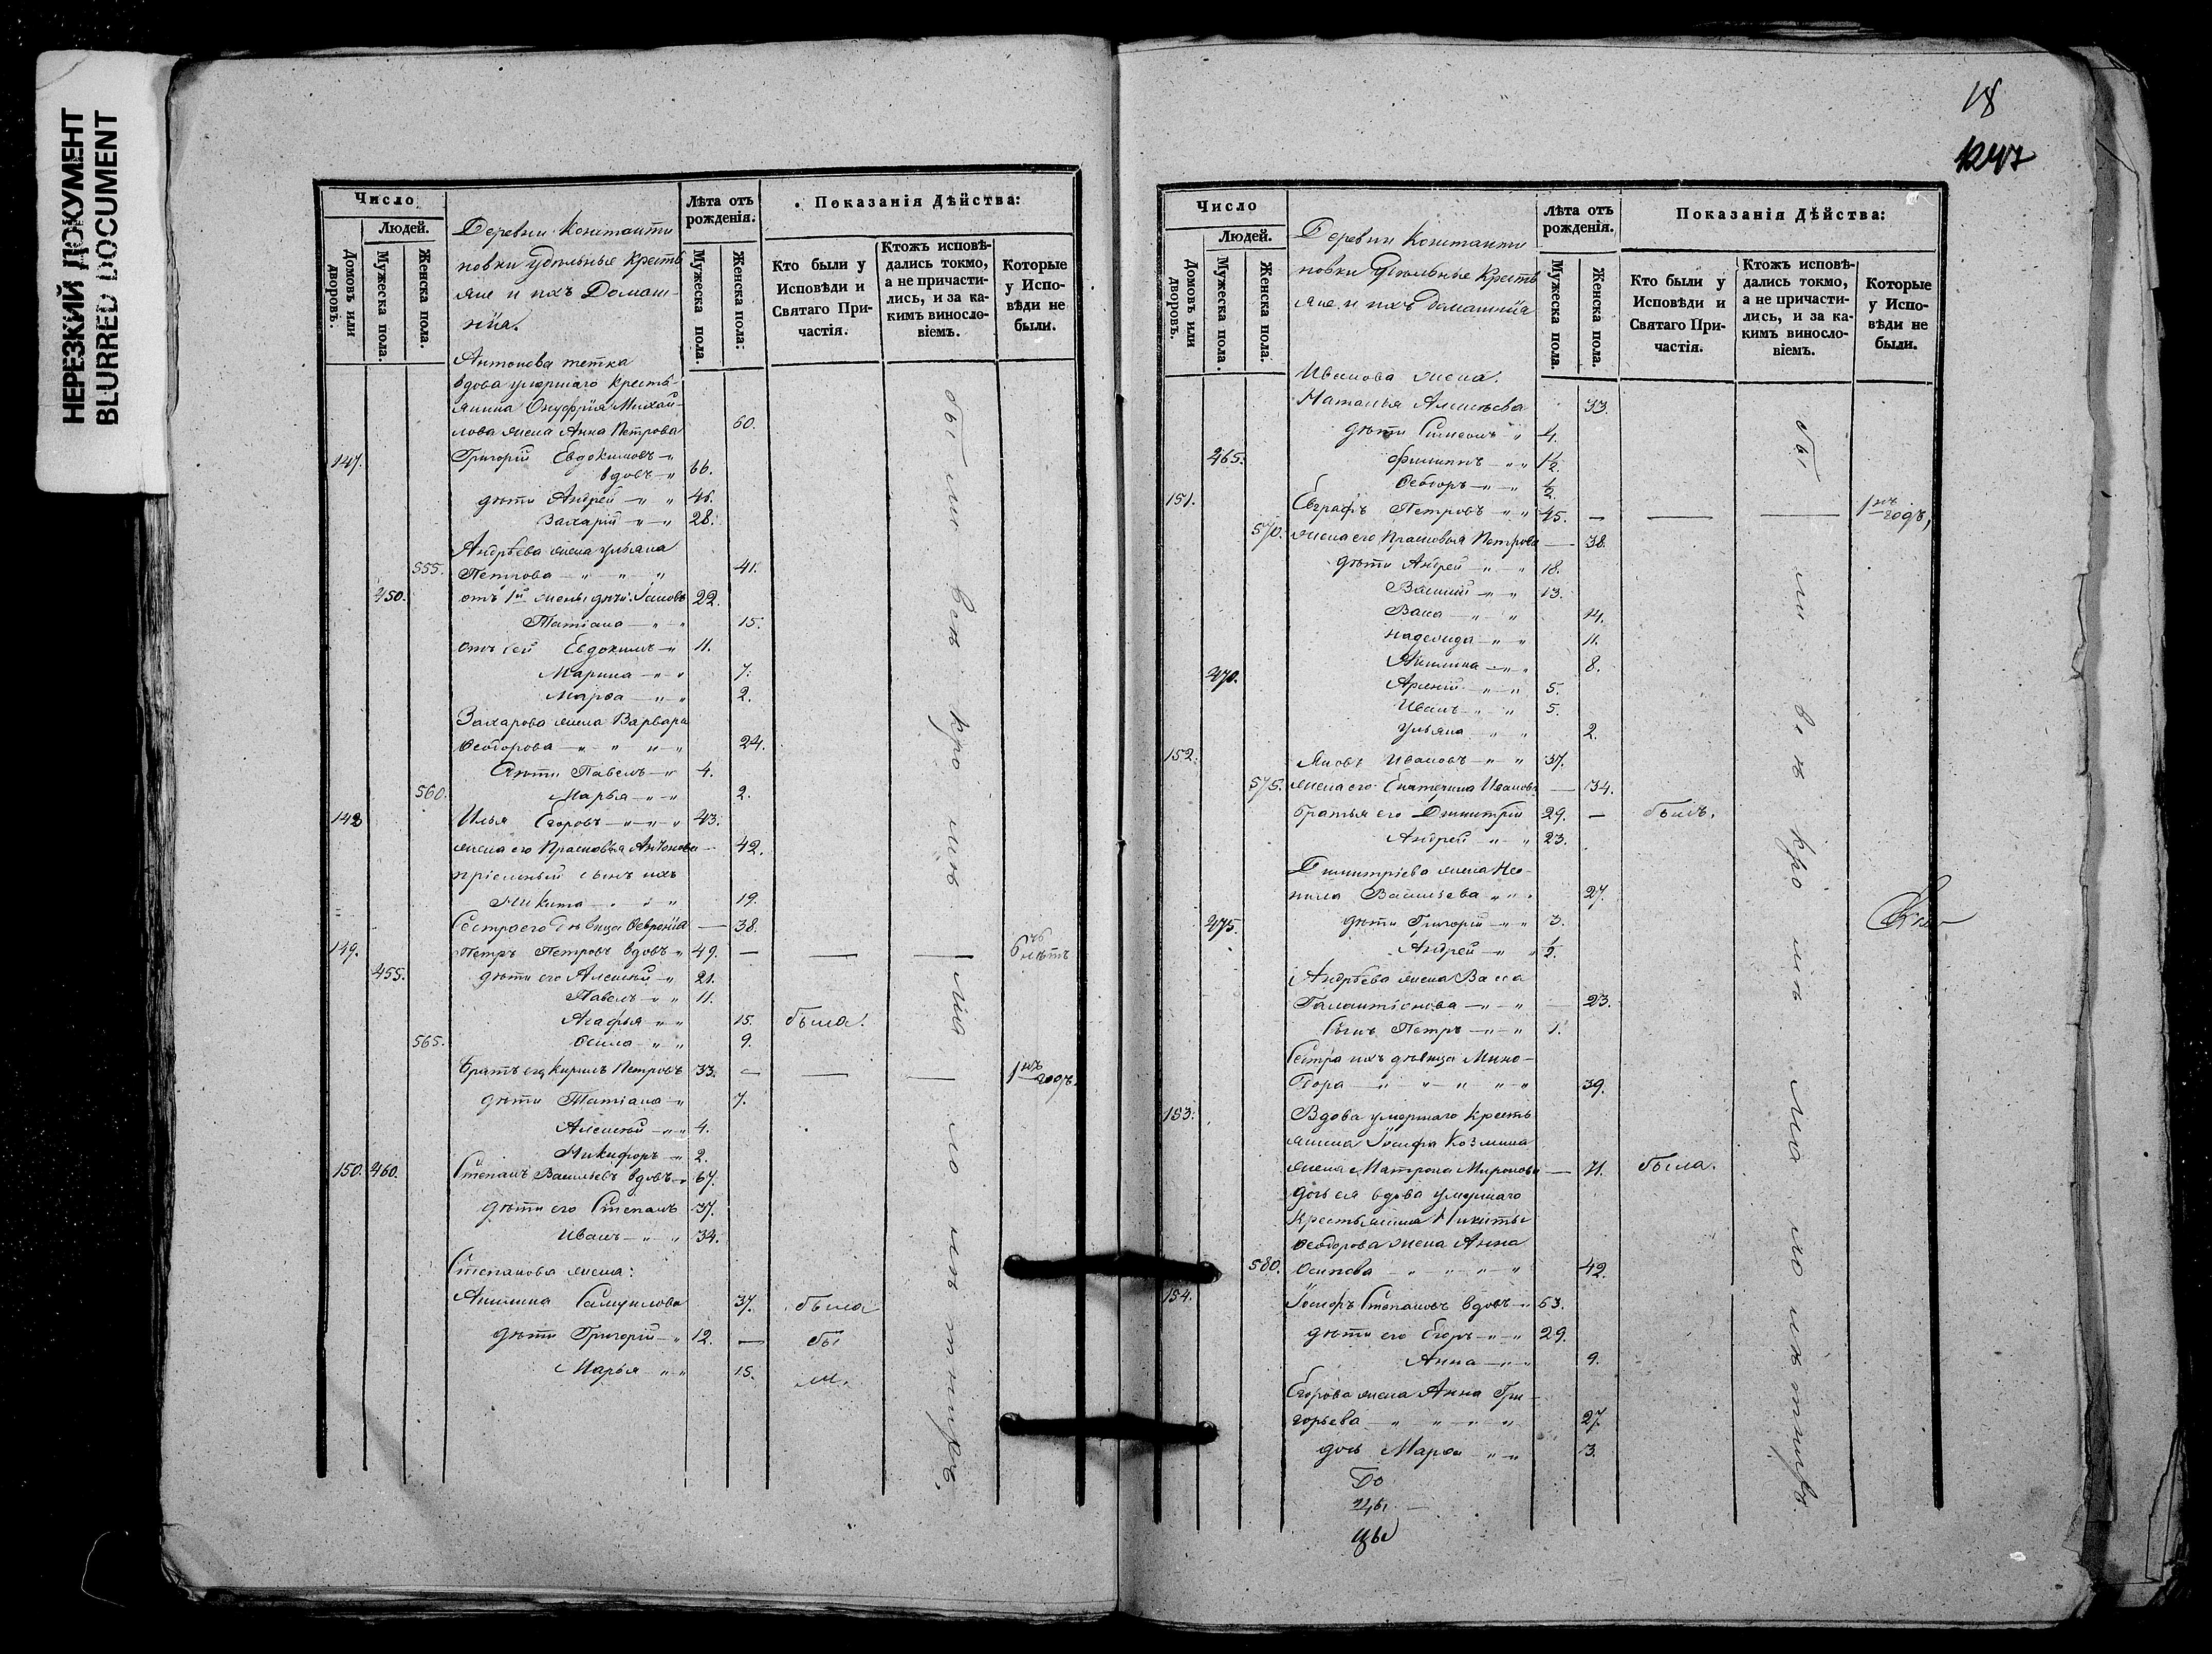 НЕРЕЗКИЙ ДОКУМЕНТ
BLURRED DOCUMENT
Число
Людей.
Домовъ или дворовъ.
Мужеска пола.
Женска пола.
Деревни Константи
новки удѣльные кресть
яне и ихъ Домаш-
нiя.
Лѣта отъ рожденія.
Мужеска пола.
Женска пола.
Показанія Дѣйства:
Кто были у Исповѣди и Святаго Причастія.
Ктожъ исповѣ-
дались токмо,
а не причасти-
лись, и за ка-
кимъ виносло-
віемъ.
Которые
у Испо-
вѣди не
были.
Антонова тетка
вдова умершаго кресть-
янина Онуфрія Михай-
лова жена Анна Петрова 60.
147. Григорій Евдокимовъ
вдовъ 66.
дѣти Андрей 46.
Захарій 28.
Андрѣева жена Ульяна
555. Петрова 41.
450. отъ 1й жены дѣти 22.
Татіана 15.
отъ сей Евдокимъ 11.
Марина 7.
Марѳа 2.
Захарова жена Варвара
Ѳеодорова 24.
дѣти Павелъ 4.
560. Марья 2.
148 Илья Егоровъ 43.
жена его Прасковья Антонова 42.
пріемный сынъ ихъ
Никита 19.
Сестра его дѣвица Ѳевронія 38.
149. Петръ Петровъ вдовъ 49. 6 лѣтъ
455. дѣти его Алексѣй 21.
Павелъ 11.
Агафья 15. была.
565. 9.
Братъ его Кирилъ Петровъ 33. 1 годъ.
дѣти Татіана 7.
Алексѣй 4.
Никифоръ 2.
150. 460. Степанъ Васильевъ вдовъ 67.
дѣти его Степанъ 37.
Иванъ 34.
Степанова жена:
Акилина Самуилова 37. была
дѣти Григорій 12. бы
Марья 15. ли.
18
1247
Число
Людей.
Домовъ или дворовъ.
Мужеска пола
Женска пола.
Деревни Константи
новки Удѣльные Кресть
яне и ихъ домашнія
Лѣта отъ рожденія.
Мужеска пола
Женска пола.
Показанія Дѣйства:
Кто были у Исповѣди и Святаго Причастія.
Ктожъ исповѣ-
дались токмо,
а не причасти-
лись, и за ка-
кимъ винослo-
віемъ.
Которые
у Испо-
вѣди не
были.
Иванова жена.
Наталья Алексѣева 33.
дѣти Симеонъ 4.
465. Филиппъ 1½.
Ѳеодоръ ½.
151. Евграфъ Петровъ 45. 1 годъ,
570. жена его Прасковья Петрова 38.
дѣти Андрей 18.
Василій 13.
Васса 14.
Надежда 11.
Акилина 8.
470. Арсеній 5.
Иванъ 5.
Ульяна 2.
152. Яковъ Ивановъ 37.
575. жена его Екатерина Иванова 34.
братья его Димитрій 29. былъ.
Андрей 23.
Димитріева жена Нео-
нила Васильева 27.
475. дѣти Григорій 3.
Андрей ½.
Андрѣева жена Васса
Галактіонова 23.
сынъ Петръ 1.
Сестра ихъ дѣвица Мино-
дора 39.
153. Вдова умершаго Кресть
янина Іосифа Козмина
жена Матрона Миронова 71. была.
дочь ея вдова умершаго
Крестьянина Никиты
Ѳеодорова жена Анна
580. Осипова 42.
154. Іосифъ Степановъ вдовъ 53.
дѣти его Егоръ 29.
Анна 9.
Егорова жена Анна Гри-
горьева 27.
дочь Марѳа 3.